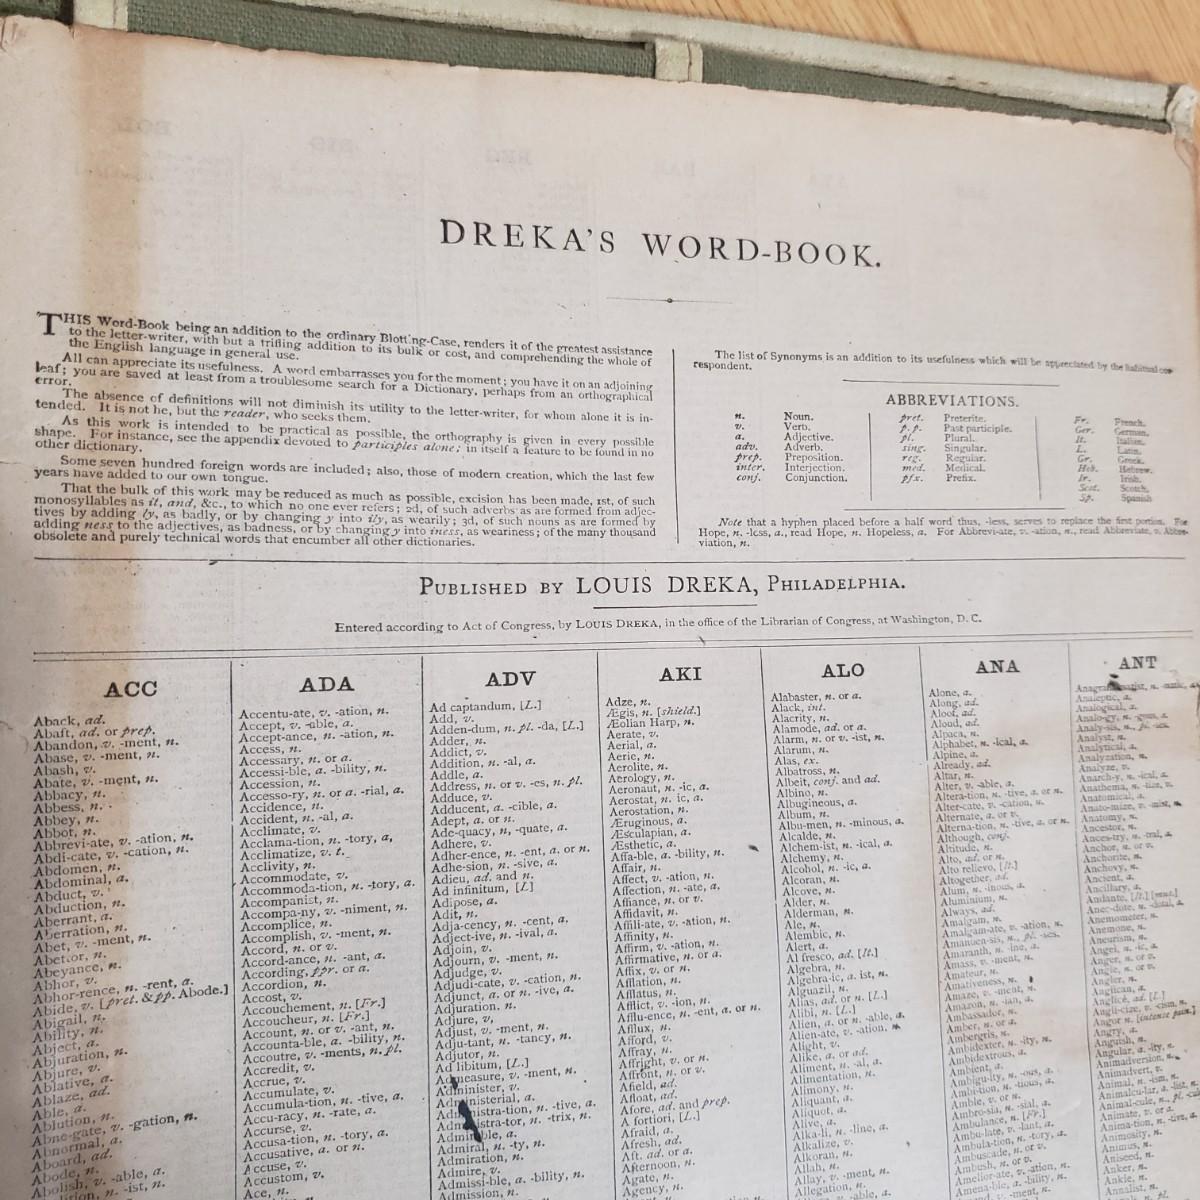 DREKA'S WORD-BOOK.
THIS Word-Book being an addition to the ordinary Blotting-Case, renders it of the greatest assistance
to the letter-writer, with but a trifling addition to its bulk or cost, and comprehending the whole of
the English language in general use.
All can appreciate its usefulness. A word embarrasses you for the moment; you have it on an adjoining
leaf; you are saved at least from a troublesome search for a Dictionary, perhaps from an orthographical
error.
The absence of definitions will not diminish its utility to the letter-writer, for whom alone it is in-
tended. It is not he, but the reader, who seeks them.
As this work is intended to be practical as possible, the orthography is given in every possible
shape. For instance, see the appendix devoted to participles alone; in itself a feature to be found in no
other dictionary.
Some seven hundred foreign words are included; also, those of modern creation, which the last few
years have added to our own tongue.
That the bulk of this work may be reduced as much as possible, excision has been made, 1st, of such
monosyllables as it, and, &c., to which no one ever refers; 2d, of such adverbs as are formed from adjec-
tives by adding ly, as badly, or by changing y into ily, as wearily; 3d, of such nouns as are formed by
adding ness to the adjectives, as badness, or by changing y into iness, as weariness; of the many thousand
obsolete and purely technical words that encumber all other dictionaries.
The list of Synonyms is an addition to its usefulness which will be appreciated by the habitual cor-
respondent.
ABBREVIATIONS.
n. Noun.
v. Verb.
a. Adjective.
adv. Adverb.
prep. Preposition.
inter. Interjection.
conj. Conjunction.
pret. Preterite.
p. p. Past participle.
pl. Plural.
sing. Singular.
reg. Regular.
med. Medical.
pfx. Prefix.
Fr. French.
Ger. German.
It. Italian.
L. Latin.
Gr. Greek.
Heb. Hebrew.
Ir. Irish.
Scot. Scotch.
Sp. Spanish
Note that a hyphen placed before a half word thus, -less, serves to replace the first portion. For
Hope, n. -less, a., read Hope, n. Hopeless, a. For Abbrevi-ate, v. -ation, n., read Abbreviate, v. Abbre-
viation, n.
PUBLISHED BY LOUIS DREKA, PHILADELPHIA.
Entered according to Act of Congress, by LOUIS DREKA, in the office of the Librarian of Congress, at Washington, D. C.
ACC
Aback, ad.
Abaft, ad. or prep.
Abandon, v. -ment, n.
Abase, v. -ment, n.
Abash, v.
Abate, v. -ment, n.
Abbacy, n.
Abbess, n.
Abbey, n.
Abbot, n.
Abbrevi-ate, v. -ation, n.
Abdi-cate, v. -cation, n.
Abdomen, n.
Abdominal, a.
Abduct, v.
Abduction, n.
Aberrant, a.
Aberration, n.
Abet, v. -ment, n.
Abettor, n.
Abeyance, n.
Abhor, v.
Abhor-rence, n. -rent, a.
Abide, v. [pret. & pp. Abode.]
Abigail, n.
Ability, n.
Abject, a.
Abjuration, n.
Abjure, v.
Ablative, a.
Ablaze, ad.
Able, a.
Ablution, n.
Abne-gate, v. -gation, n.
Abnormal, a.
Aboard, ad.
Abode, n.
Abolish, v. -able, a.
-ist, n.
ADA
Accentu-ate, v. -ation, n.
Accept, v. -able, a.
Accept-ance, n. -ation, n.
Access, n.
Accessary, n. or a.
Accessi-ble, a. -bility, n.
Accession, n.
Accesso-ry, n. or a. -rial, a.
Accidence, n.
Accident, n. -al, a.
Acclimate, v.
Acclama-tion, n. -tory, a.
Acclimatize, v. t.
Acclivity, n.
Accommodate, v.
Accommoda-tion, n. -tory, a.
Accompanist, n.
Accompa-ny, v. -niment, n.
Accomplice, n.
Accomplish, v. -ment, n.
Accord, n. or v.
Accord-ance, n. -ant, a.
According, ppr. or a.
Accordion, n.
Accost, v.
Accouchement, n. [Fr.]
Accoucheur, n. [Fr.]
Account, n. or v. -ant, n.
Accounta-ble, a. -bility, n.
Accoutre, v. -ments, n. pl.
Accredit, v.
Accrue, v.
Accumulate, v.
Accumula-tion, n. -tive, a.
Accu-racy, n. -rate, a.
Accurse, v.
Accusa-tion, n. -tory, a.
Accusative, a. or n.
Accuse, v.
Accustom, v.
Ace, n.
ADV
Ad captandum, [L.]
Add, v.
Adden-dum, n. pl. -da, [L.]
Adder, n.
Addict, v.
Addition, n. -al, a.
Addle, a.
Address, n. or v. -es, n. pl.
Adduce, v.
Adducent, a. -cible, a.
Adept, a. or n.
Ade-quacy, n, -quate, a.
Adhere, v.
Adher-ence, n. -ent, a. or n.
Adhe-sion, n. -sive, a.
Adieu, ad. and n.
Ad infinitum, [L]
Adipose, a.
Adit, n.
Adja-cency, n. -cent, a.
Adject-ive, n. -ival, a.
Adjoin, v.
Adjourn, v. -ment, n.
Adjudge, v.
Adjudi-cate, v. -cation, n.
Adjunct, a. or n. -ive, a.
Adjuration. n.
Adjure, v,
Adjust, v. -ment, n.
Adju-tant, n. -tancy, n.
Adjutor, n.
Ad libitum, [L.]
Admeasure, v. -ment, n.
Administer, v.
Administerial, a.
Administra-tion, n. -tive, a.
Administra-tor, n. -trix, n.
Admirable, a.
Admiral, n. -ty, n.
Admiration, n.
Admire, v.
Admissi-ble, a. -bility, n.
Admission, n.
AKI
Adze, n.
Ægis, n. [shield.]
Æolian Harp, n.
Aerate, v.
Aerial, a.
Aeric, n.
Aerolite, n.
Aerology, n.
Aeronaut, n. -ic, a.
Aerostat, n. ic, a.
Aerostation, n.
Æruginous, a.
Æsculapian, a.
Æsthetic, a.
Affa-ble, a. -bility, n.
Affair, n.
Affect, v. -ation, n.
Affection, n. -ate, a.
Affiance, n. or v.
Affidavit, n.
Affili-ate, v. -ation, n.
Affinity, n.
Affirm, v. -ation, n.
Affirmative, n. or a.
Affix, v. or n.
Afflation, n.
Afflatus, n.
Afflict, v. -ion, n.
Afflu-ence, n. -ent, a. or n.
Afflux, n.
Afford, v.
Affray, n.
Affright, v. or n.
Affront, n. or v.
Afield, ad.
Afloat, ad.
Afore, ad. and prep.
A fortiori, [L.]
Afraid, a.
Afresh, ad.
Aft. ad. or a.
Afternoon, n.
Agate, n.
Agency, n.
ALO
Alabaster, n. or a.
Alack, int.
Alacrity, n.
Alamode, ad. or a.
Alarm, n. or v. -ist, n.
Alarum, n.
Alas, ex.
Albatross, n.
Albeit, conj. and ad.
Albino, n.
Albugineous, a.
Album, n.
Albu-men, n. -minous, a.
Alcalde, n.
Alchem-ist, n. -ical, a.
Alchemy, n.
Alcohol, n. -ic, a.
Alcoran, n.
Alcove, n.
Alder, n.
Alderman, n.
Ale, n.
Alembic, n.
Alert, a.
Al fresco, ad. [It.]
Algebra, n.
Algebra-ic, a. ist, n.
Alguazil, n.
Alias, ad. or n. [L.]
Alibi, n. [L.]
Alien, a. or n. -able, a.
Alien-ate, v. -ation. n.
Alight, v.
Alike, a. or ad.
Aliment, n. -al, a.
Alimentation, n.
Alimony, n.
Aliquant, a.
Aliquot, a.
Alive, a.
Alka-li, n. -line, a.
Alkalize, v.
Alkoran, n.
Allah, n.
Allay, v. -ment, n.
Allegation, n.
ANA
Alone, a.
Along, ad.
Aloof, ad.
Aloud, ad.
Alpaca, n.
Alphabet, n. -ical, a.
Alpine, a.
Already, ad.
Altar, n.
Alter, v. -able, a.
Altera-tion, n. -tive, a. or n.
Alter-cate, v. -cation, n.
Alternate, a. or v.
Alterna-tion, n. -tive, a. or n.
Although, conj.
Altitude, n.
Alto, ad. or n.
Alto relievo, [It.]
Altogether, ad.
Alum, n. -inous, a.
Aluminium, n.
Always, ad.
Amalgam, n.
Amalgam-ate, v. -ation, n.
Amanuen-sis, n., pl. -ses.
Amaranth, n. -ine, a.
Amass, v. -ment, n.
Amateur, n.
Amativeness, n.
Amaze, v. -ment, n.
Amazon, n. -ian, a.
Ambassador, n.
Amber, n. or a.
Ambergris, n.
Ambidexter, n. -ity, n.
Ambidextrous, a.
Ambient, a.
Ambigu-ity, n. -ous, a.
Ambition, n. -tious, a.
Amble, v. or n.
Ambro-sia, n. -sial, a.
Ambulance, n. [Fr.]
Ambu-late, v. -lant, a.
Ambula-tion, n. -tory, a.
Ambuscade, n. or v.
Ambush, n. or v.
Amelior-ate, v. -ation, n.
Amena-ble, a. -bility, n.
ANT
Analeptic, a.
Analogical, a.
Analo-gy, n. -gous, a.
Analy-sis, n., pl. -ses
Analyst, n.
Analytical, a.
Analyzation, n.
Analyze, v.
Anarch-y, n. -ical, a.
Anathema, n. -tize, v.
Anatomical, a.
Anato-mize, v. -mist, n.
Anatomy, n.
Ancestor, n.
Ances-try, n. -tral, a.
Anchor, n. or v.
Anchorite, n.
Anchovy, n.
Ancient, a.
Ancillary, a.
Andante, [It.] [mus.]
Anec-dote, n. -dotal, a.
Anemometer, n.
Anemone, n.
Aneurism, n.
Angel, n. -ic, a.
Anger, n. or v.
Angle, n. or v.
Angler, n.
Anglican, a.
Anglicé, ad. [L.]
Angli-cize, v. -cism, n.
Angor n. [intense pain.]
Angry, a.
Anguish, n.
Angular, a. -ity, n.
Animadversion, n.
Animadvert, v.
Animal, n. -ism, n.
Animate, v. or a.
Anima-tion, n. -tive, a.
Animosity, n.
Animus, n.
Aniseed, n.
Anker, n.
Ankle, n.
Annalist, n.